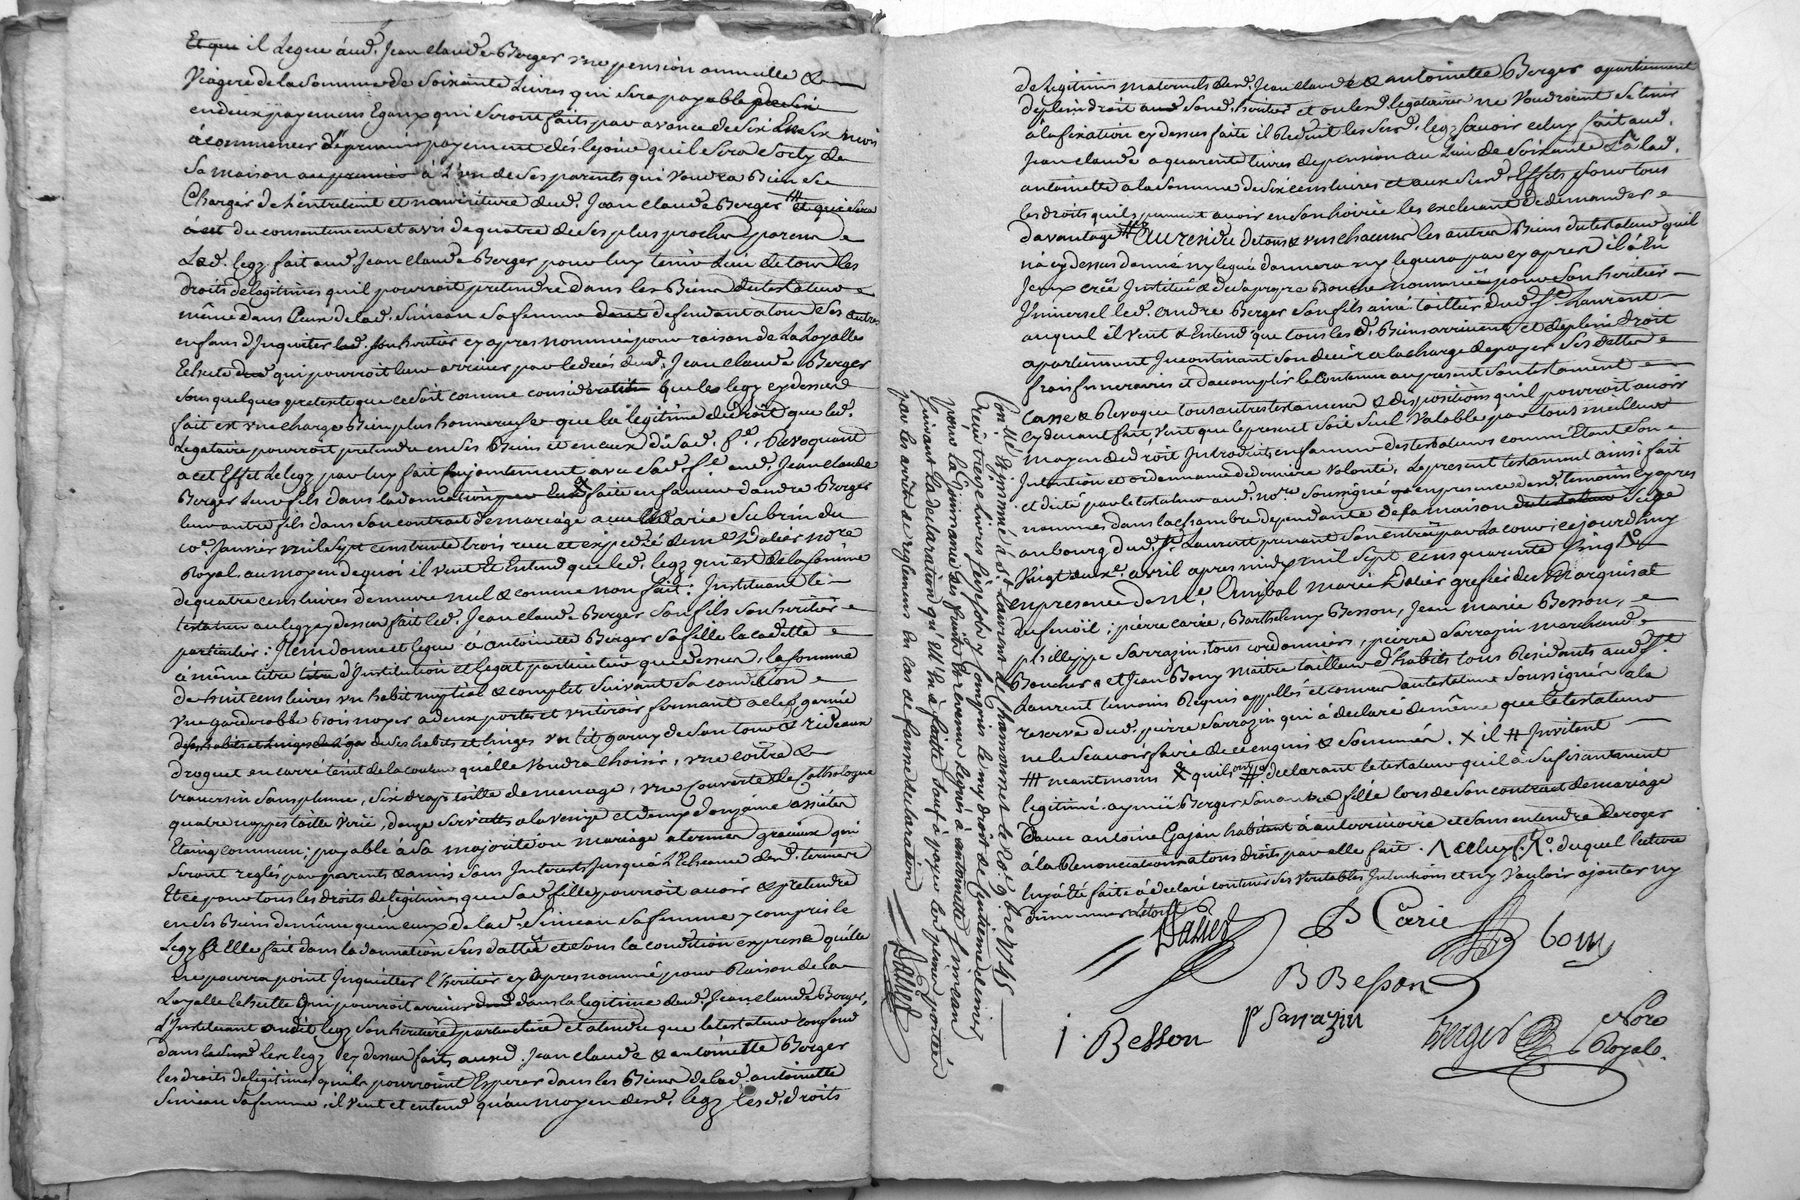 Et que il Legue aud. Jean Claude Berger une pension annuelle &
Viagere de la Somme de Soixante Livres qui sera payable
en deux payemens Egaux qui Seront faits par avance de Six En Six mois
à commencer le premier payement dés le jour qu'il Sera Sorty de
Sa maison à l'un de Ses parents qui voudra Bien Se
Charger de l'entretient et nourriture dud. Jean Claude Berger et qui sera
du consentement et avis de quatre de Ses plus proches parens
Led. legz fait aud. Jean Claude Berger pour luy tenir Lieu de tous les
droits de legitimes qu'il pourroit pretendre dans les Biens du testateur
même dans Ceux de lad. Simean Sa femme defendant a tous Ses autres
enfans d'Inquieter Son heritier cy apres nommé pour raison de La Loyalle
Echute qui pourroit leur arriver par le decès dud. Jean Claude Berger
Sous quelque pretexte que ce Soit comme considerant que les legz cy dessus
fait est une charge Bien plus honnereuse que la legitime de droit que led.
Legataire pourroit pretendre en Ses Biens et en ceux de Sad. fe. Revoquant
a cet Effet Le legz par luy fait conjointement avec Sad. fe. aud. Jean Claude
Berger Leur fils dans la donnation faite en faveur d'andre Berger
leur autre fils dans Son contrat de mariage avec Marie Subrin du
10e. Janvier mil Sept cens trente trois receu et expedié de me. Dalier nore
Royal. au moyen de quoi il veut Et Entend que led. legz qui est de la Somme
de quatre cens livres demeure nul & comme non fait; Instituant le
testateur au legz cy dessus fait led. Jean Claude Berger Son fils Son heritier
particulier: Item donne et legue à antoinette Berger Sa fille la cadette
à même titre d'Institution et legat particulier que dessus, la Somme
de huit cens livres un habit nuptial & complet Suivant Sa condition
Une garderobbe Bois noyer a deux portes et un tiroir fermant a clef garnie
de Ses habits et linges un lit garny de Son tour & rideaux
droguet en carré teint de la couleur quelle Voudra choisir, une coitre &
traversin Sans plume, Six draps toille de menage, une Couverte de Cathalogne
quatre nappes toille Verie, douze Serviettes a la Venize et demy douzaine assietes
Etaing commun; payable à Sa majorité ou mariage a termes gracieux qui
Seront reglés par parents & amis Sans Interests Jusqu'à L'Echeance desd. termes
Et ce pour tous les droits de legitimes que Sad. fille pourroit avoir & pretendre
en Ses Biens de même que en ceux de lad. Simean Sa femme y compris le
Legz à Elle fait dans la donnation Sus dattée et Sous la condition expresse qu'elle
ne pourra point Inquietter l'heritier cy apres nommé pour Raison de la
Loyalle Echutte qui pourroit arriver dans la legitime dud. Jean Claude Berger,
L'Instituant audit legz Son heritiere particuliere et attendu que le testateur confond
dans les Susd. legz cy dessus faits ausd. Jean Claude & antoinette Berger
les droits de legitimes qu'ils pourroient Esperer dans les Biens de lad. antoinette
Simean Sa femme, il veut et entend qu'au moyen desd. legz lesd. droits
Con.lle & Ins.inué à St. Laurens de Chamousset le 20e. 9bre 1745
Reçu treize livres six sols y compris le my droit de Centieme denier
pour la Joüissance des fruits & revenus legués à antoinette Simean
Suivant la declaration qu'elle en à faitte Sauf à payer les peines portées
par les arrêts de reglemens en cas de fausse declaration
Dalier
de legitimes maternels desd. Jean Claude & antoinette Berger apartiennent
de plein droit aud. Sond. heritier et ou lesd. legataires ne Voudroient Se tenir
à la fixation cy dessus faite il Reduit les Susd. legz Scavoir celuy fait aud.
Jean Claude a quarente livres de pension au Lieu de Soixante & a lad.
antoinette a la Somme de Six cens livres et aux Susd. Effets pour tous
les droits qu'ils peuvent avoir en Son hoirie les excluant de demander
davantage Au residu de tous & uns chacuns les autres Biens du testateur qu'il
n'a cy dessus donné ny legué donnera ny leguera par cy apres il à Eu
Iceux creé Institué & de Sa propre Bouche nommé pour Son heritier
Universel led. andre Berger Son fils ainé tailleur dud. St. Laurent
auquel il veut & Entend que tous lesd. Biens arrivent et de plein droit
apartiennent Incontinant Son decès a la charge de payer Ses dettes
frais funeraires et d'accomplir le Contenu au present Son testament
Casse & Revoque tous autres testamens & dispositions qu'il pourroit avoir
cy devant fait, veut que le present Soit Seul Valable par tous meilleurs
moyens de droit Introduits en faveur des testateurs comm'Etant Son
Intention et ordonnance de derniere volonté, Le present testament ainsi fait
et dicté par le testateur aud. nore Soussigné qu'en presence desd. temoins cy apres
nommés dans la chambre dependante de sa maison Scize
au bourg dud. St. Laurent prenant Son entrée par la cour; cejourd'huy
Vingt deuxe. avril apres midy mil Sept cens quarente Cinq
en presence de me. Annibal Marie Dalier greffier du Marquisat
du fenoïl; pierre carrie, Barthelemy Besson, Jean Marie Besson,
phillippe Sarrazin, tous cordonniers, pierre Sarrazin marchand
Boucher & et Jean Bouy maître tailleur d'habits tous Residants aud. St.
Laurent temoins Requis appellés et connus au testateur Soussignés a la
reserve dud. pierre Sarrazin qui à declaré de même que le testateur
ne le Scavoir faire de ce enquis & Sommés. X il # Invitent
# neantmoins X qu'il # declarant le testateur qu'il à Suffisantement
legitimé aymée Berger Son autre fille lors de Son contract de mariage
avec antoine Gajan habitant à et Sans entendre deroger
à la Renonciation a tous droits par elle fait. duquel lecture
luy à été faite à declaré contenir Ses Veritables Intentions et ny Vouloir ajouter ny
diminuer
Dalier
P Carie
bouy
B Besson
i. Besson
p Sarrazin
Berger
nore
Royal.